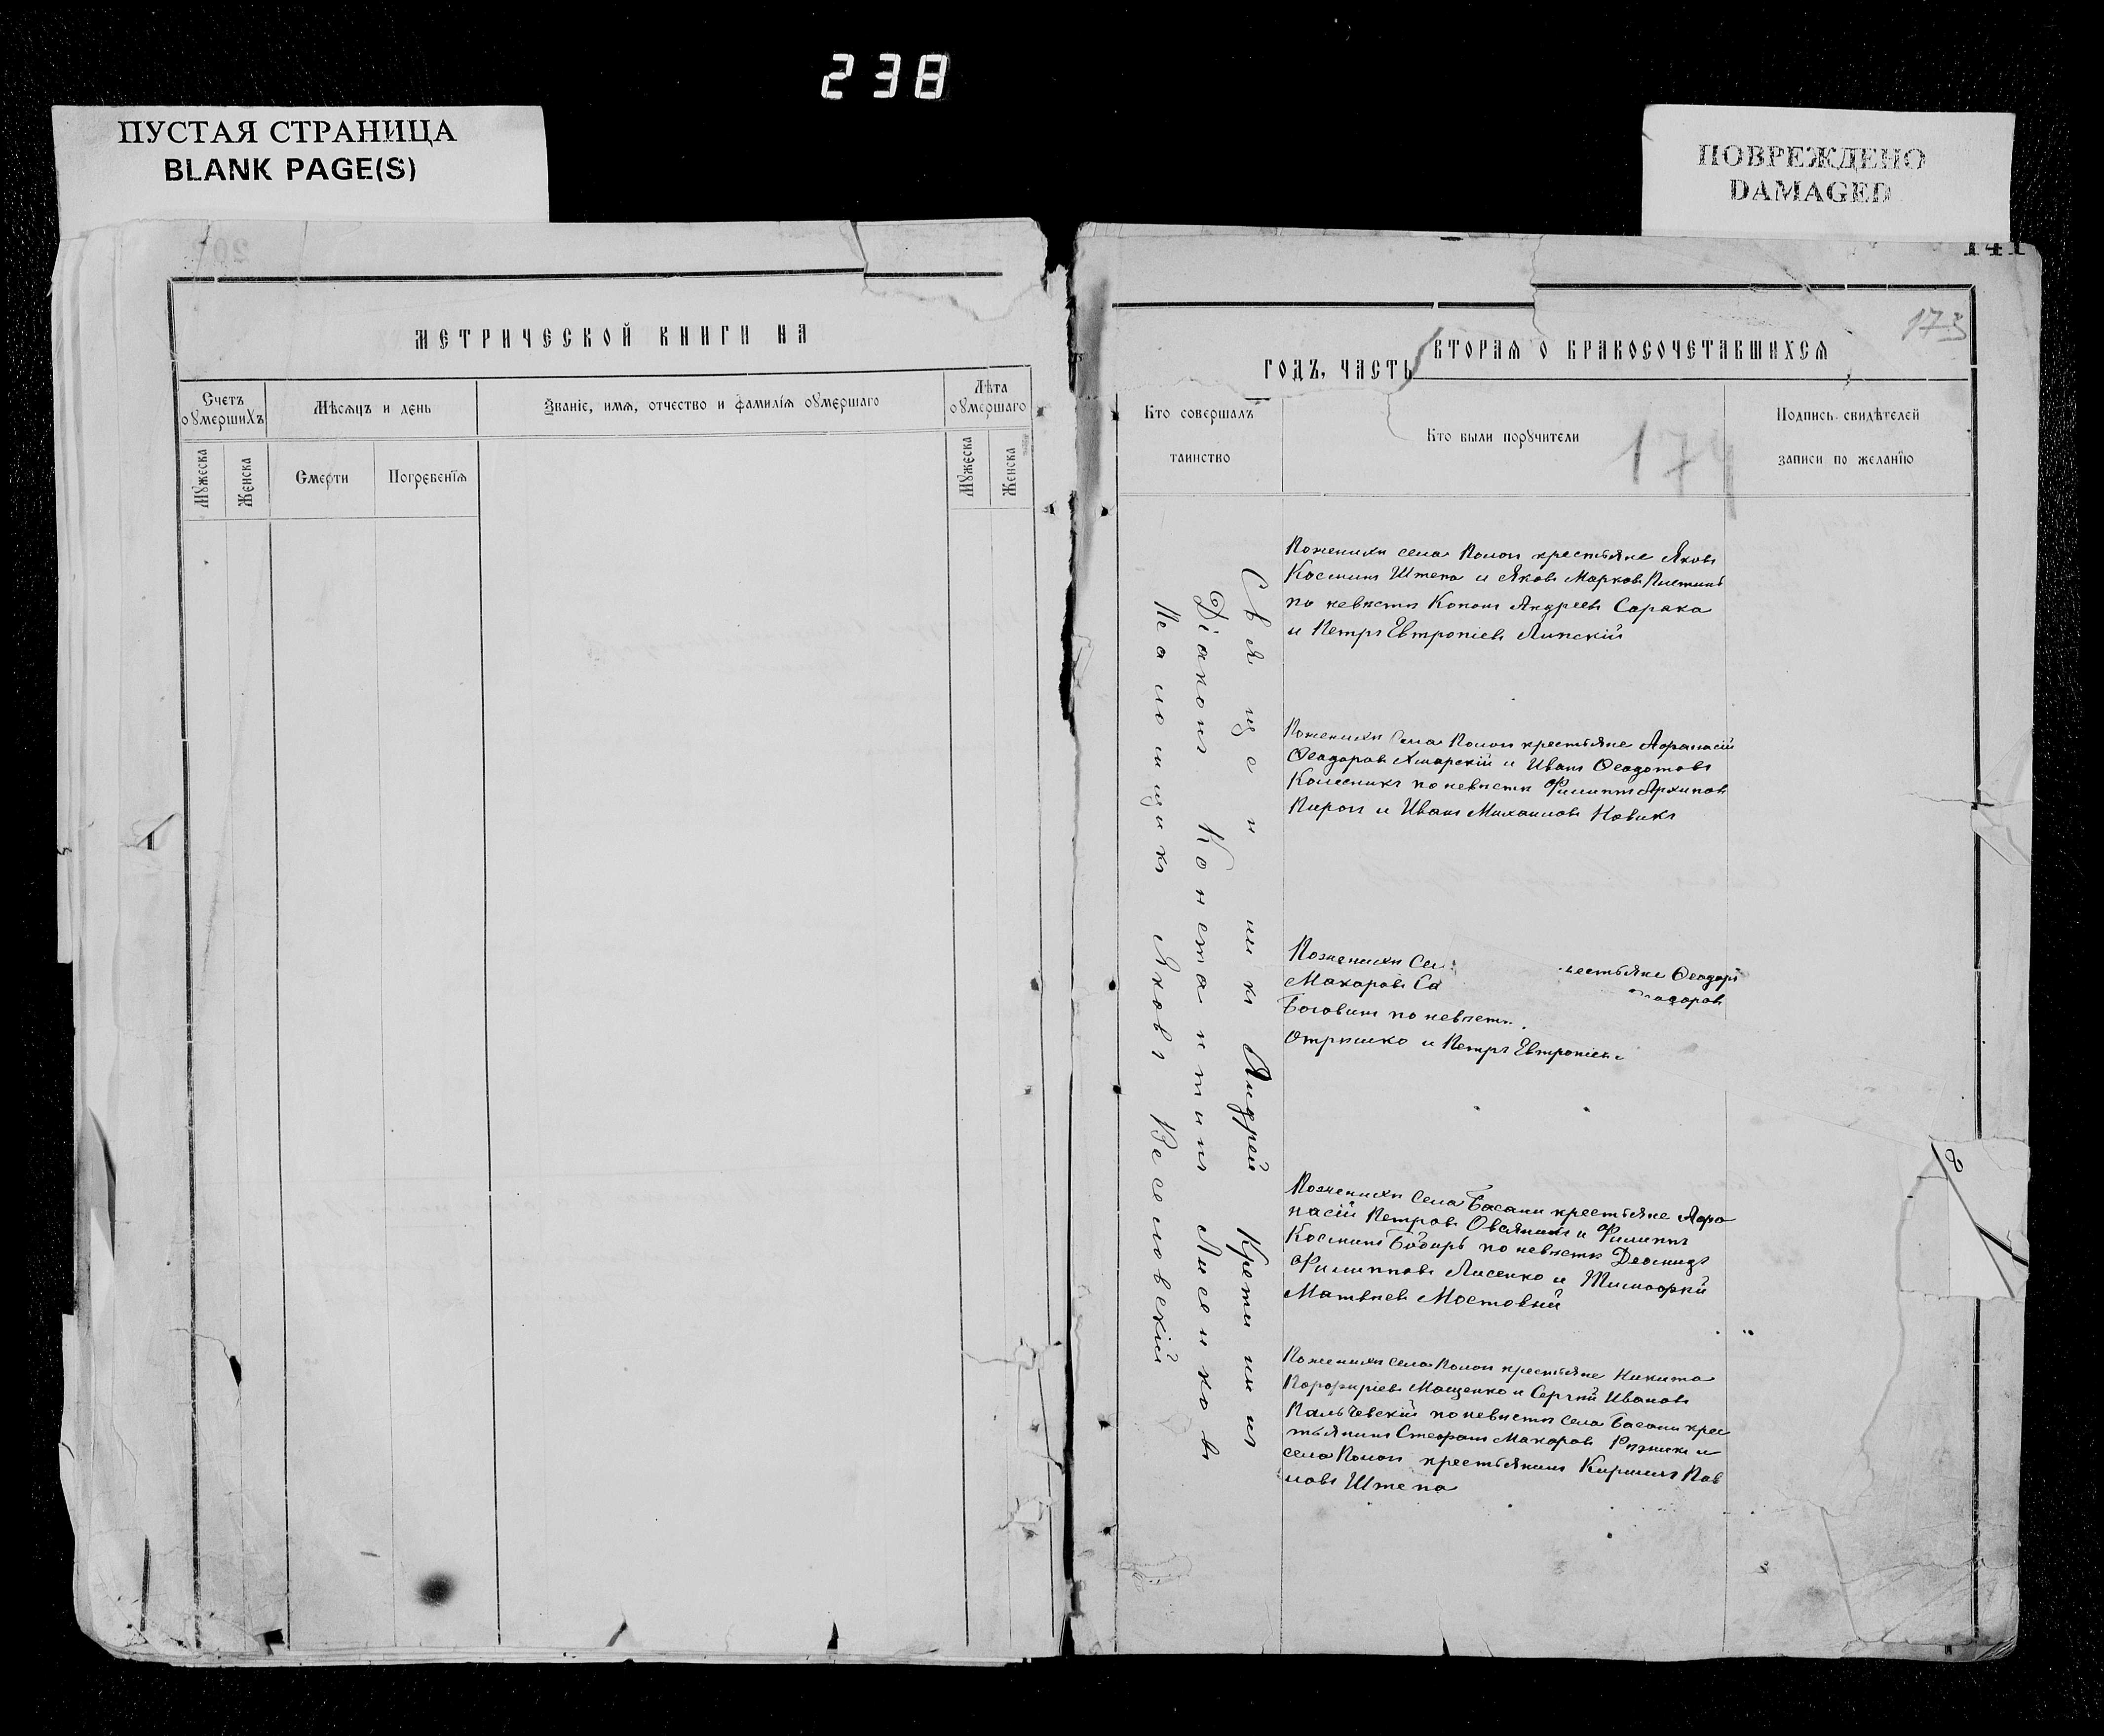 238
ПУСТАЯ СТРАНИЦА
BLANK PAGE(S)
ПОВРЕЖДЕНО
DAMAGED
МЕТРИЧЕСКОЙ КНИГИ НА
Счетъ
оумершихъ
Мѣсяцъ и день
Званіе, имя, отчество и фамилія оумершаго
Лѣта
оумершаго
Мужеска
Женска
Смерти
Погребенія
Мужеска
Женска
141
173
ГОДЪ, ЧАСТЬ ВТОРАЯ О БРАКОСОЧЕТАВШИХСЯ
Кто совершалъ
таинство
Кто были поручители
174
Подпись свидѣтелей
записи по желанію
Священникъ Андрей
Діаконъ Константинъ Лисенковъ
Псаломщикъ Яковъ Веселовскій
По женихѣ села крестьяне Яковъ
Косминъ Штепа и Яковъ Марковъ
по невѣстѣ Кононъ Андреевъ Сорака
и Петръ Евтропіевъ Липскій
По женихѣ села крестьяне Афанасій
Феодоровъ Хмарскій и Иванъ Феодотовъ
Колесникъ по невѣстѣ Филиппъ Архиповъ
Пирогъ и Иванъ Михаиловъ Новикъ
По женихѣ Сел крестьяне Феодоръ
Макаровъ Са
по невѣстѣ
и Петръ Евтропіевъ
По женихѣ села Басани крестьяне Афа
насій Петровъ и Филиппъ
Косминъ по невѣстѣ Деомидъ
Филипповъ Лисенко и Тимофей
Матвѣевъ Мостовый
По женихѣ села крестьяне Никита
Порфиріевъ Мащенко и Сергѣй Ивановъ
Пальчевскій по невѣстѣ села Басани крес
тьянинъ Стефанъ Макаровъ Рѣзникъ и
села крестьянинъ Кириллъ Пав
ловъ Штепа